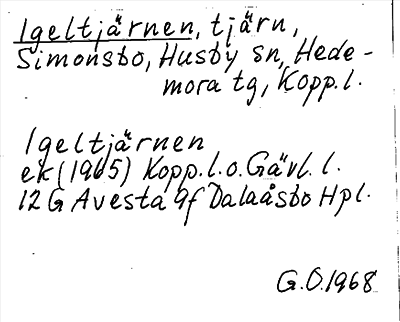 Igeltjärnen, tjärn,
Simonsbo, Husby sn, Hede-
mora tg, Kopp.l.
Igeltjärnen
ek (1965) Kopp.l.o. Gävl. l.
12 G Avesta 9f Dalaåsbo Hpl.
G.O.1968